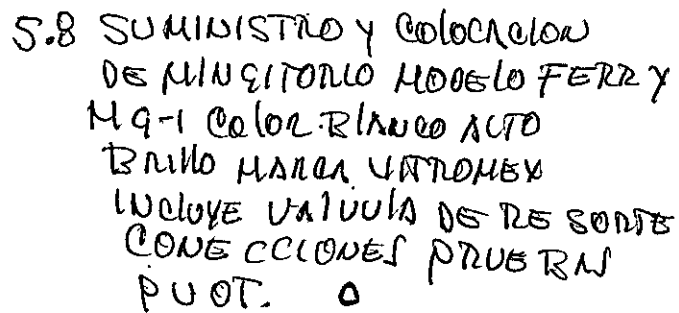 5.8 SUMINISTRO Y COLOCACION
DE MINGITORIO MODELO FERRY
MG-1 COLOR BLANCO ALTO
BRILLO MARCA VITROMEX
INCLUYE VALVULA DE RESORTE
CONECCIONES PRUEBAS
PUOT.